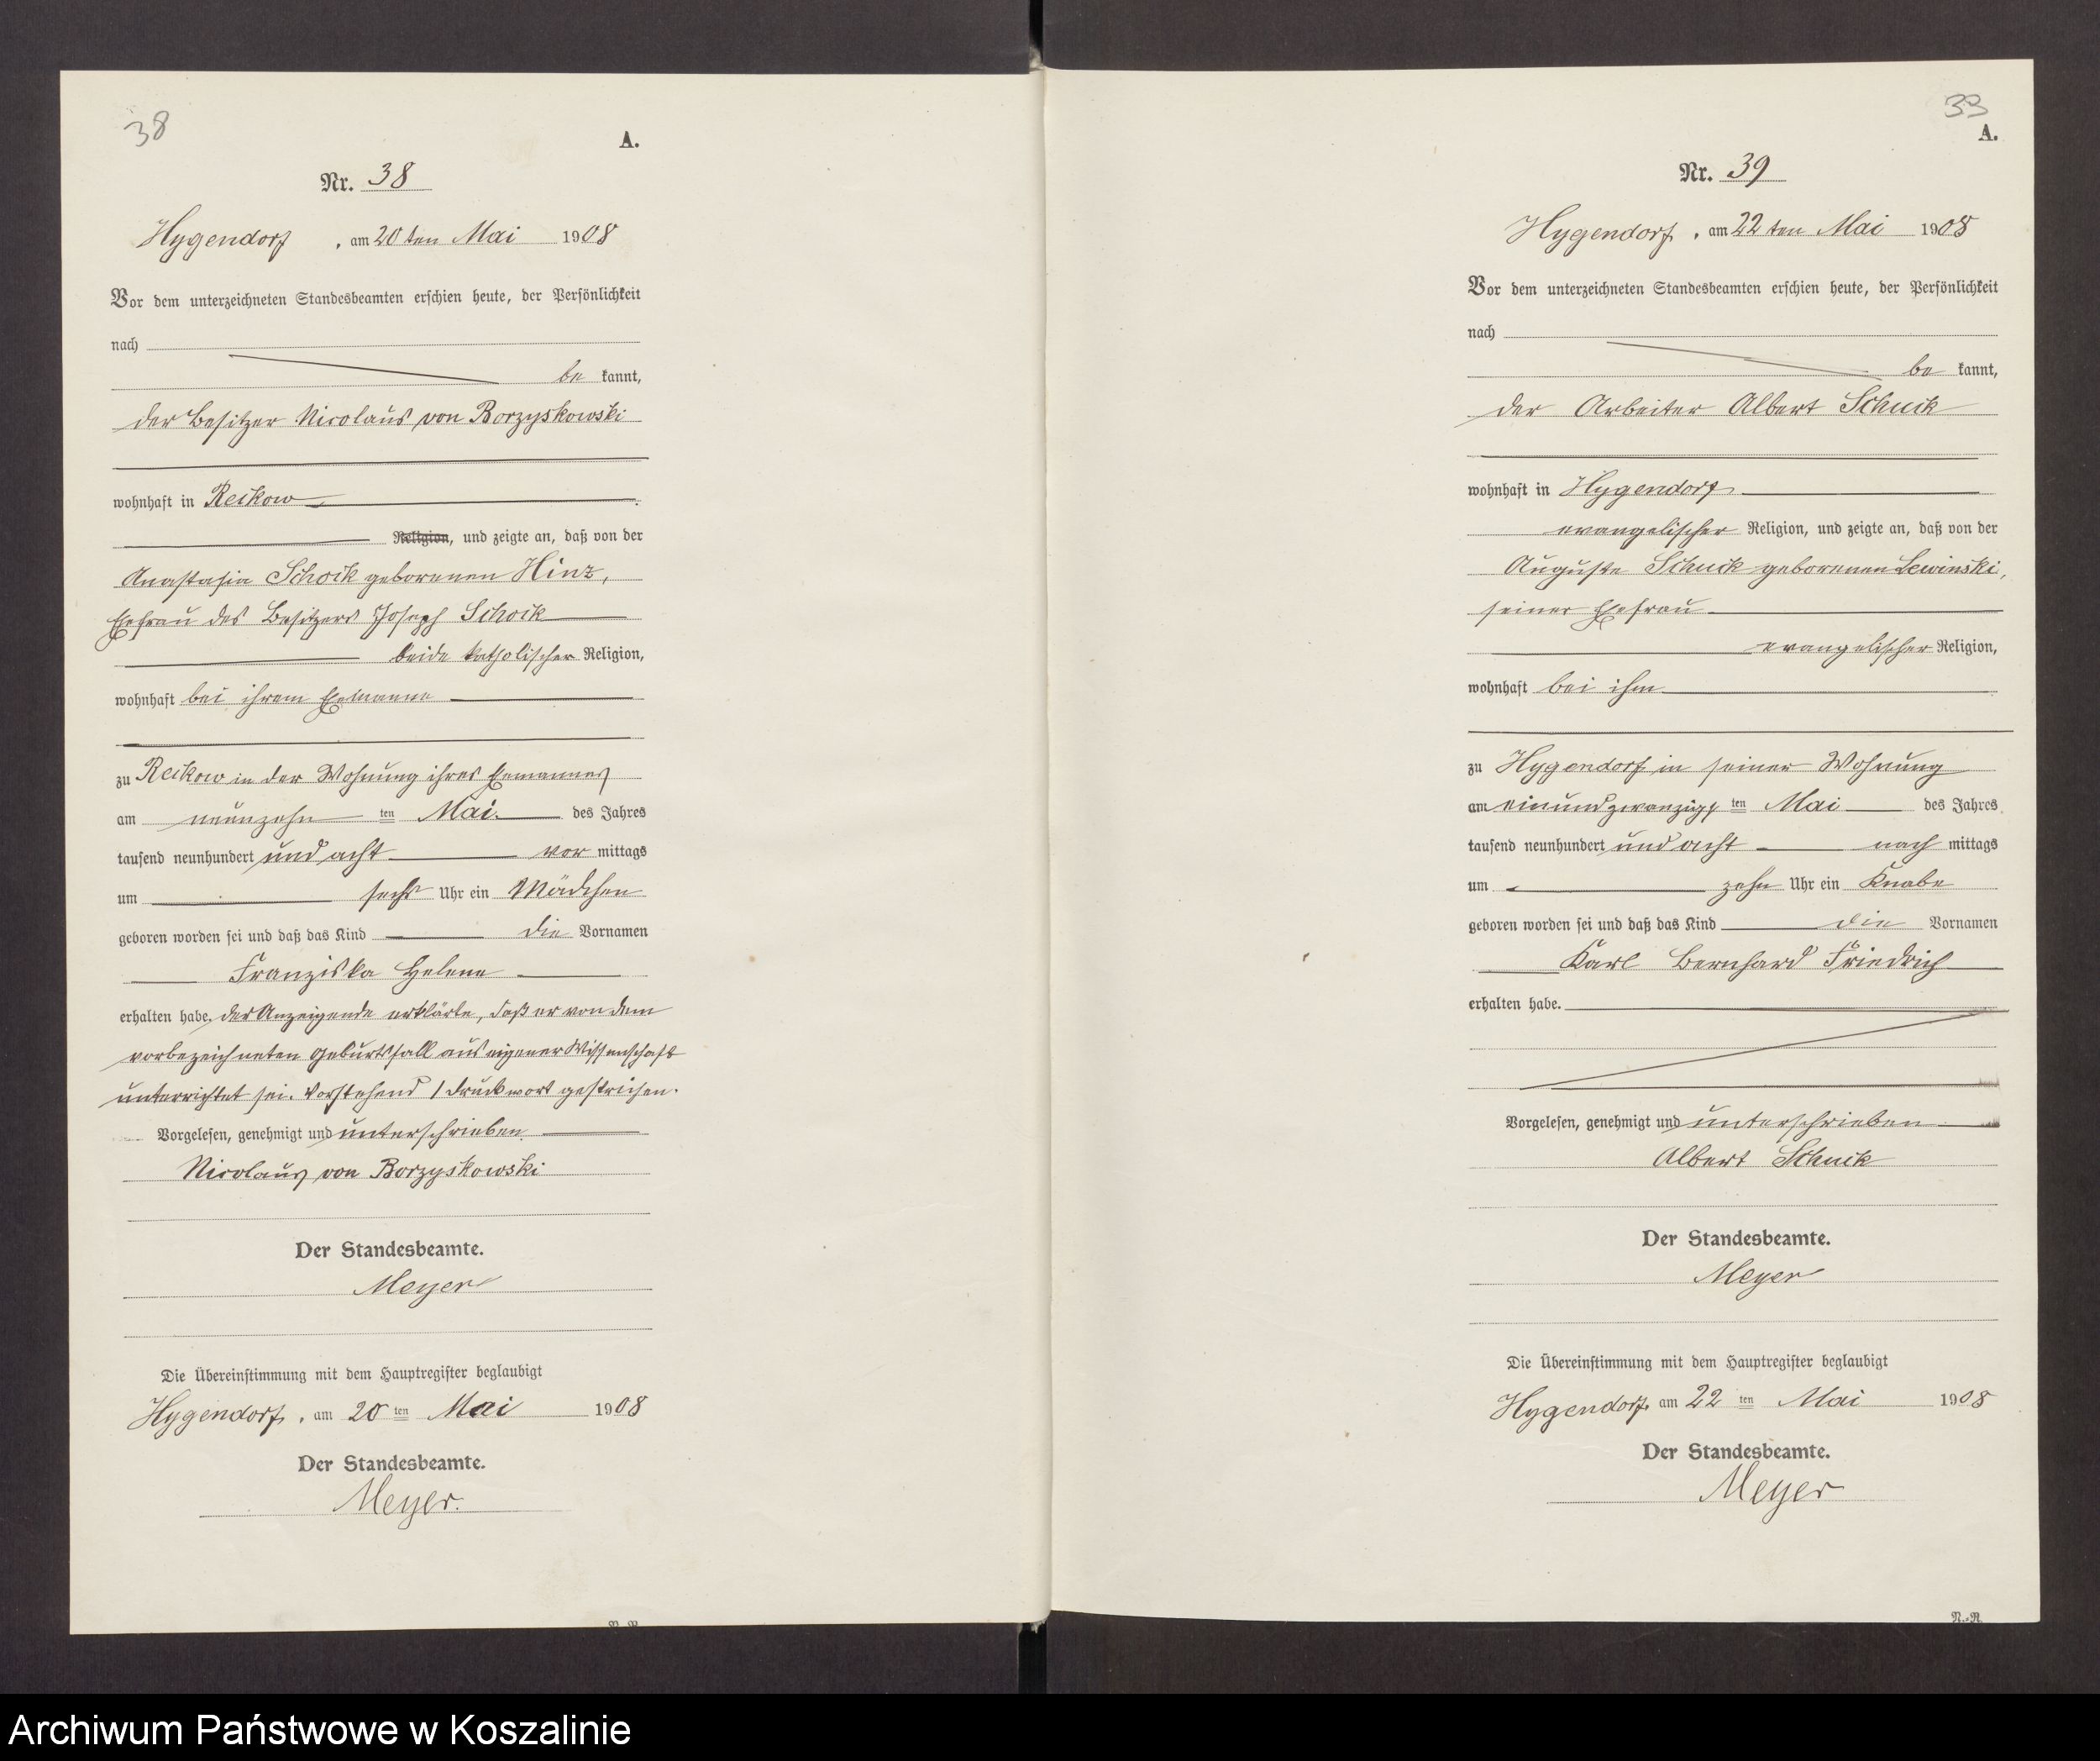 38
A.
Nr. 38
Hygendorf, am 20ten Mai 1908
Vor dem unterzeichneten Standesbeamten erschien heute, der Persönlichkeit
nach
be kannt,
der Besitzer Nicolaus von Borzyskowski
wohnhaft in Reckow
Religion, und zeigte an, daß von der
Anastasia Schoik geborenen Hinz,
Ehefrau des Besitzers Joseph Schoik
beide katholischer Religion,
wohnhaft bei ihrem Ehemanne
zu Reckow in der Wohnung ihres Ehemannes
am neunzehn ten Mai des Jahres
tausend neunhundert und acht vor mittags
um sechs Uhr ein Mädchen
geboren worden sei und daß das Kind die Vornamen
Franziska Helene
erhalten habe. Der Anzeigende erklärte, daß er von dem
vorbezeichneten Geburtsfall aus eigener Wissenschaft
unterrichtet sei. Vorstehend 1 Druckwort gestrichen.
Vorgelesen, genehmigt und unterschrieben
Nicolaus von Borzyskowski
Der Standesbeamte.
Meyer
Die Übereinstimmung mit dem Hauptregister beglaubigt
Hygendorf, am 20 ten Mai 1908
Der Standesbeamte.
Meyer.
33
A.
Nr. 39
Hygendorf, am 22ten Mai 1908
Vor dem unterzeichneten Standesbeamten erschien heute, der Persönlichkeit
nach
be kannt,
der Arbeiter Albert Schuck
wohnhaft in Hygendorf
evangelischer Religion, und zeigte an, daß von der
Auguste Schuck geborenen Lewinski,
seiner Ehefrau
evangelischer Religion,
wohnhaft bei ihm
zu Hygendorf in seiner Wohnung
am einundzwanzigs ten Mai des Jahres
tausend neunhundert und acht nach mittags
um zehn Uhr ein Knabe
geboren worden sei und daß das Kind die Vornamen
Karl Bernhard Friedrich
erhalten habe.
Vorgelesen, genehmigt und unterschrieben
Albert Schuck
Der Standesbeamte.
Meyer
Die Übereinstimmung mit dem Hauptregister beglaubigt
Hygendorf, am 22 ten Mai 1908
Der Standesbeamte.
Meyer
N.-R.
Archiwum Państwowe w Koszalinie